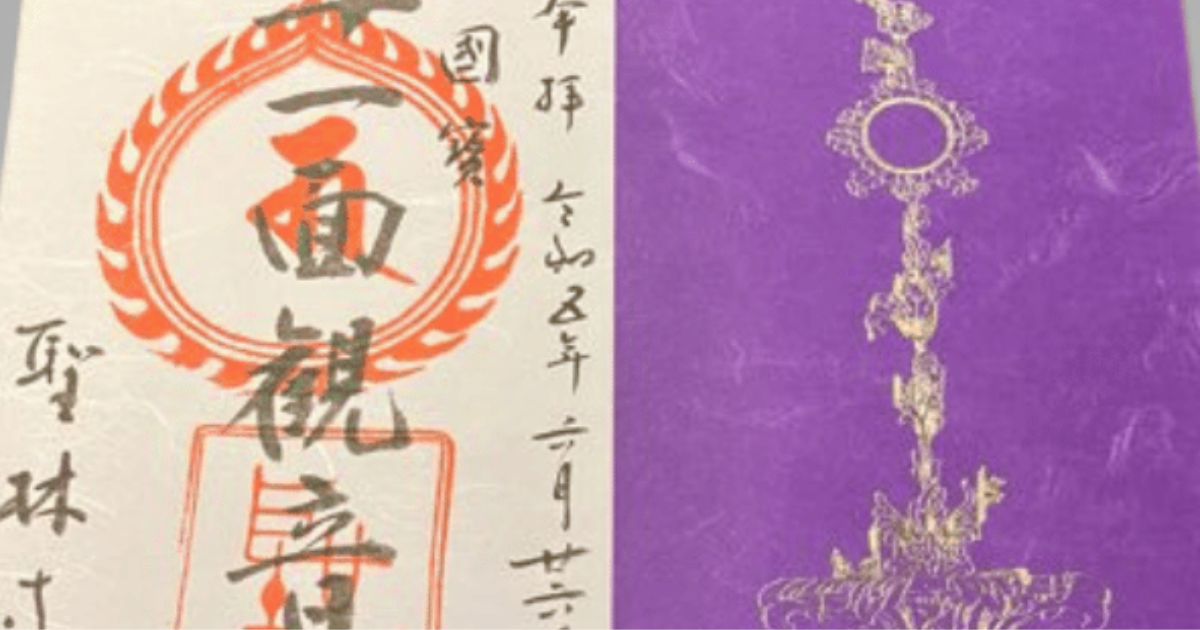 奉拝 令和五年 六月 廿六
國寶
十一面観音
聖林寺